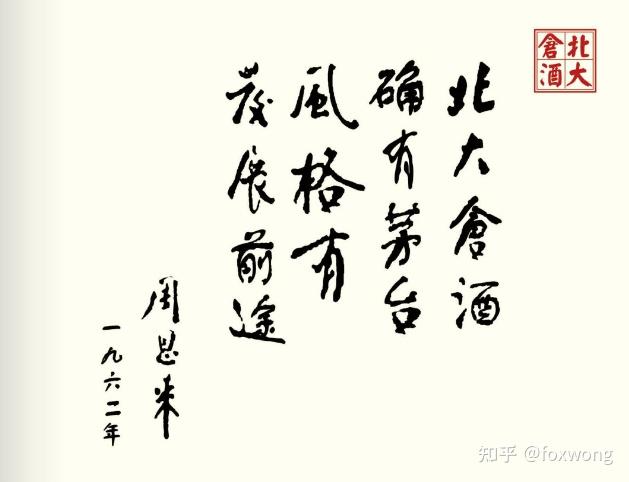 北大倉酒
北大倉酒
确有茅台
風格有
发展前途
周恩来
一九六二年
知乎 @foxwong